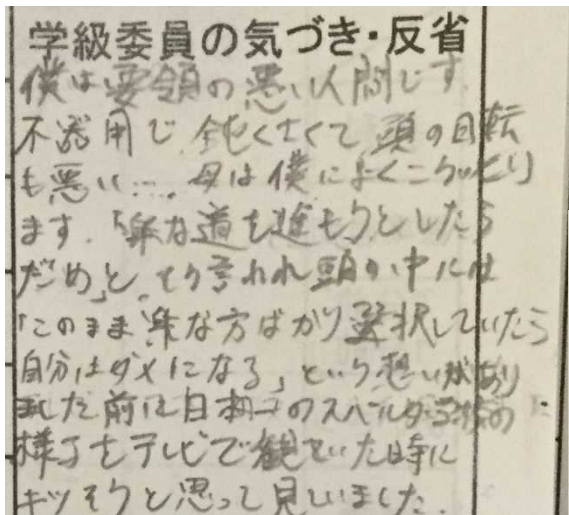 学級委員の気づき・反省
僕は要領の悪い人間です
不器用で 鈍くさくて 頭の回転
も悪い…. 母は僕によくこういっとり
ます.「楽な道を進もうとしたら
だめ」と.そう言われ頭の中には
「このまま楽な方ばかり選択していたら
自分はダメになる」という想いがあり
ました前に日本一のスペルタ学校の
様子をテレビで観ていた時に
キツそうと思って見ていました.